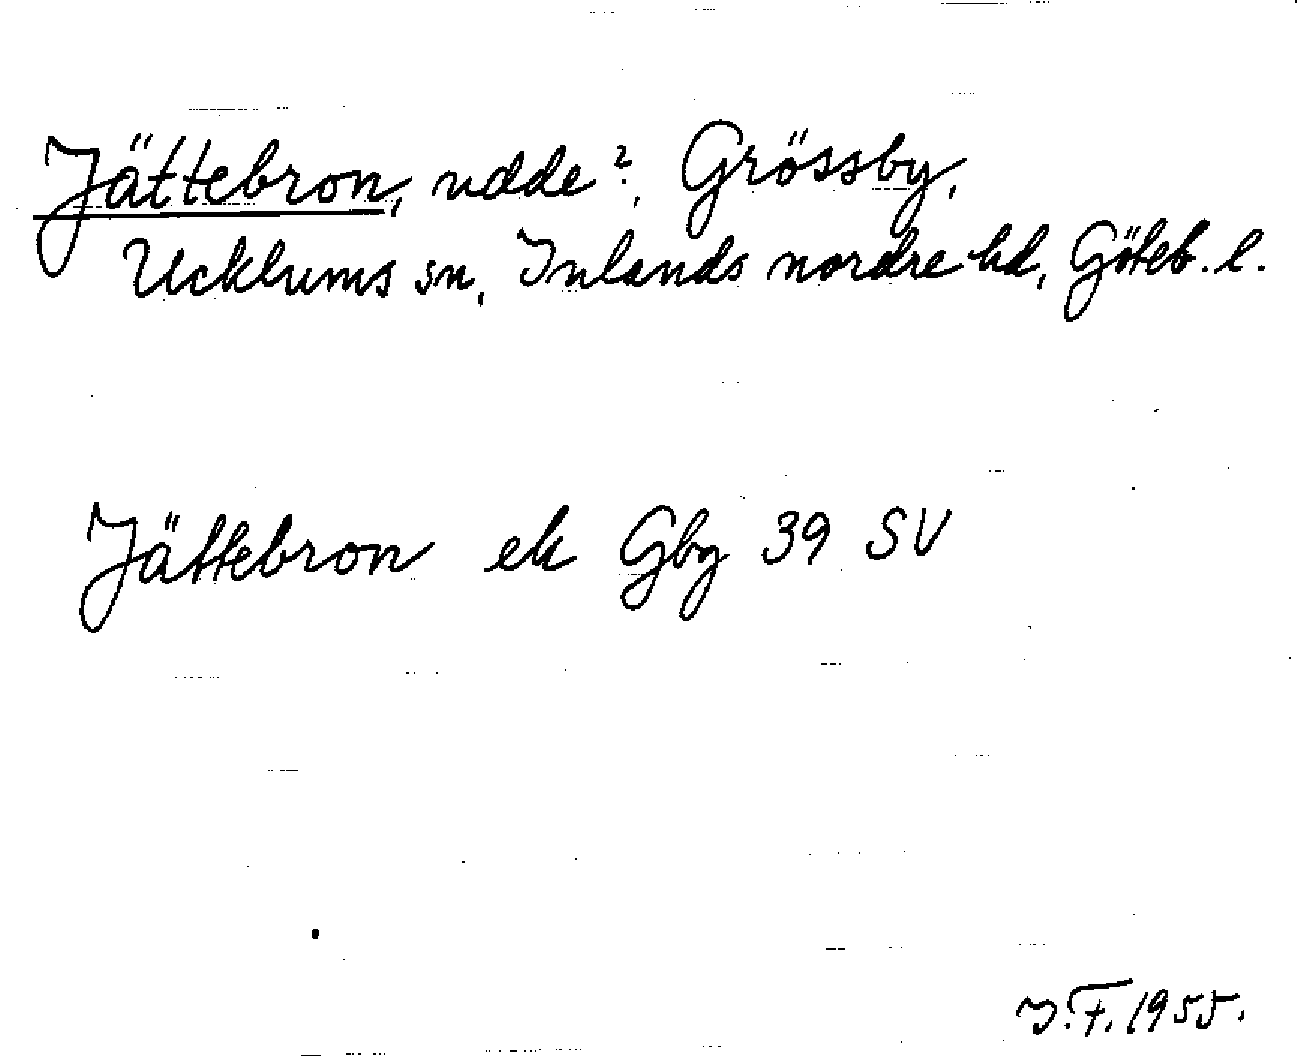 Jättebron, udde?, Grössby,
Ucklums sn, Inlands nordre hd, Göteb. l.
Jättebron ek Gby 39 SV
J.F. 1955.